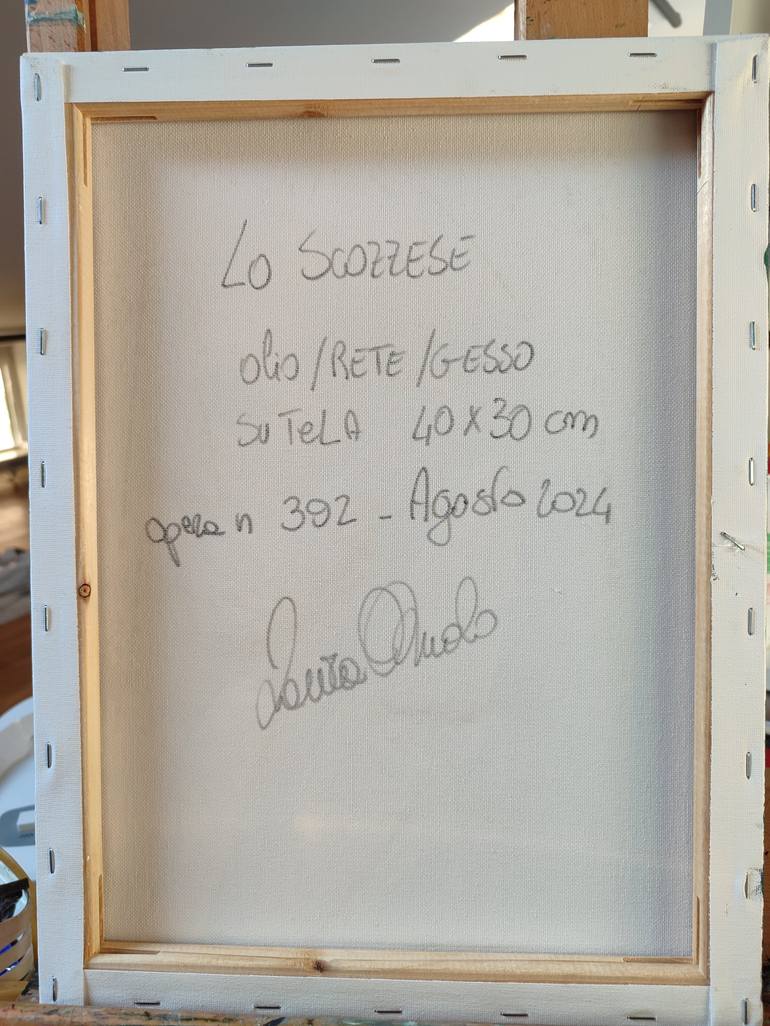 Lo SCOZZESE
olio/RETE/GESSO
SU TeLA 40x30 cm
opera n 392 - Agosto 2024